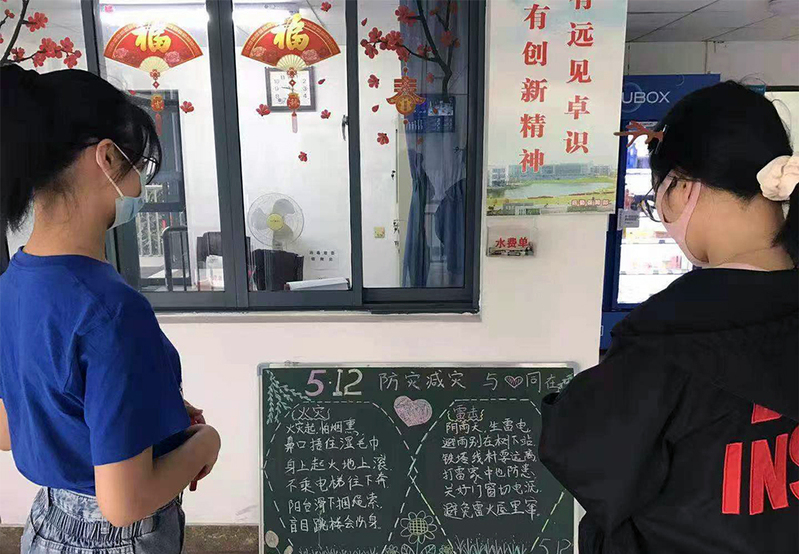 福
福
春
有远见卓识
有创新精神
UBOX
水费单
5·12 防灾减灾 与 同在
火灾
火灾起,怕烟熏
鼻口捂住湿毛巾
身上起火地上滚
不乘电梯往下奔
阳台滑下捆绳索
盲目跳楼会伤身
雷击
阴雨天,生雷电
避雨别在树下站
铁塔线杆要远离
打雷家中也防患
关好门窗切电源
避免雷火屋里窜
5.12
INS